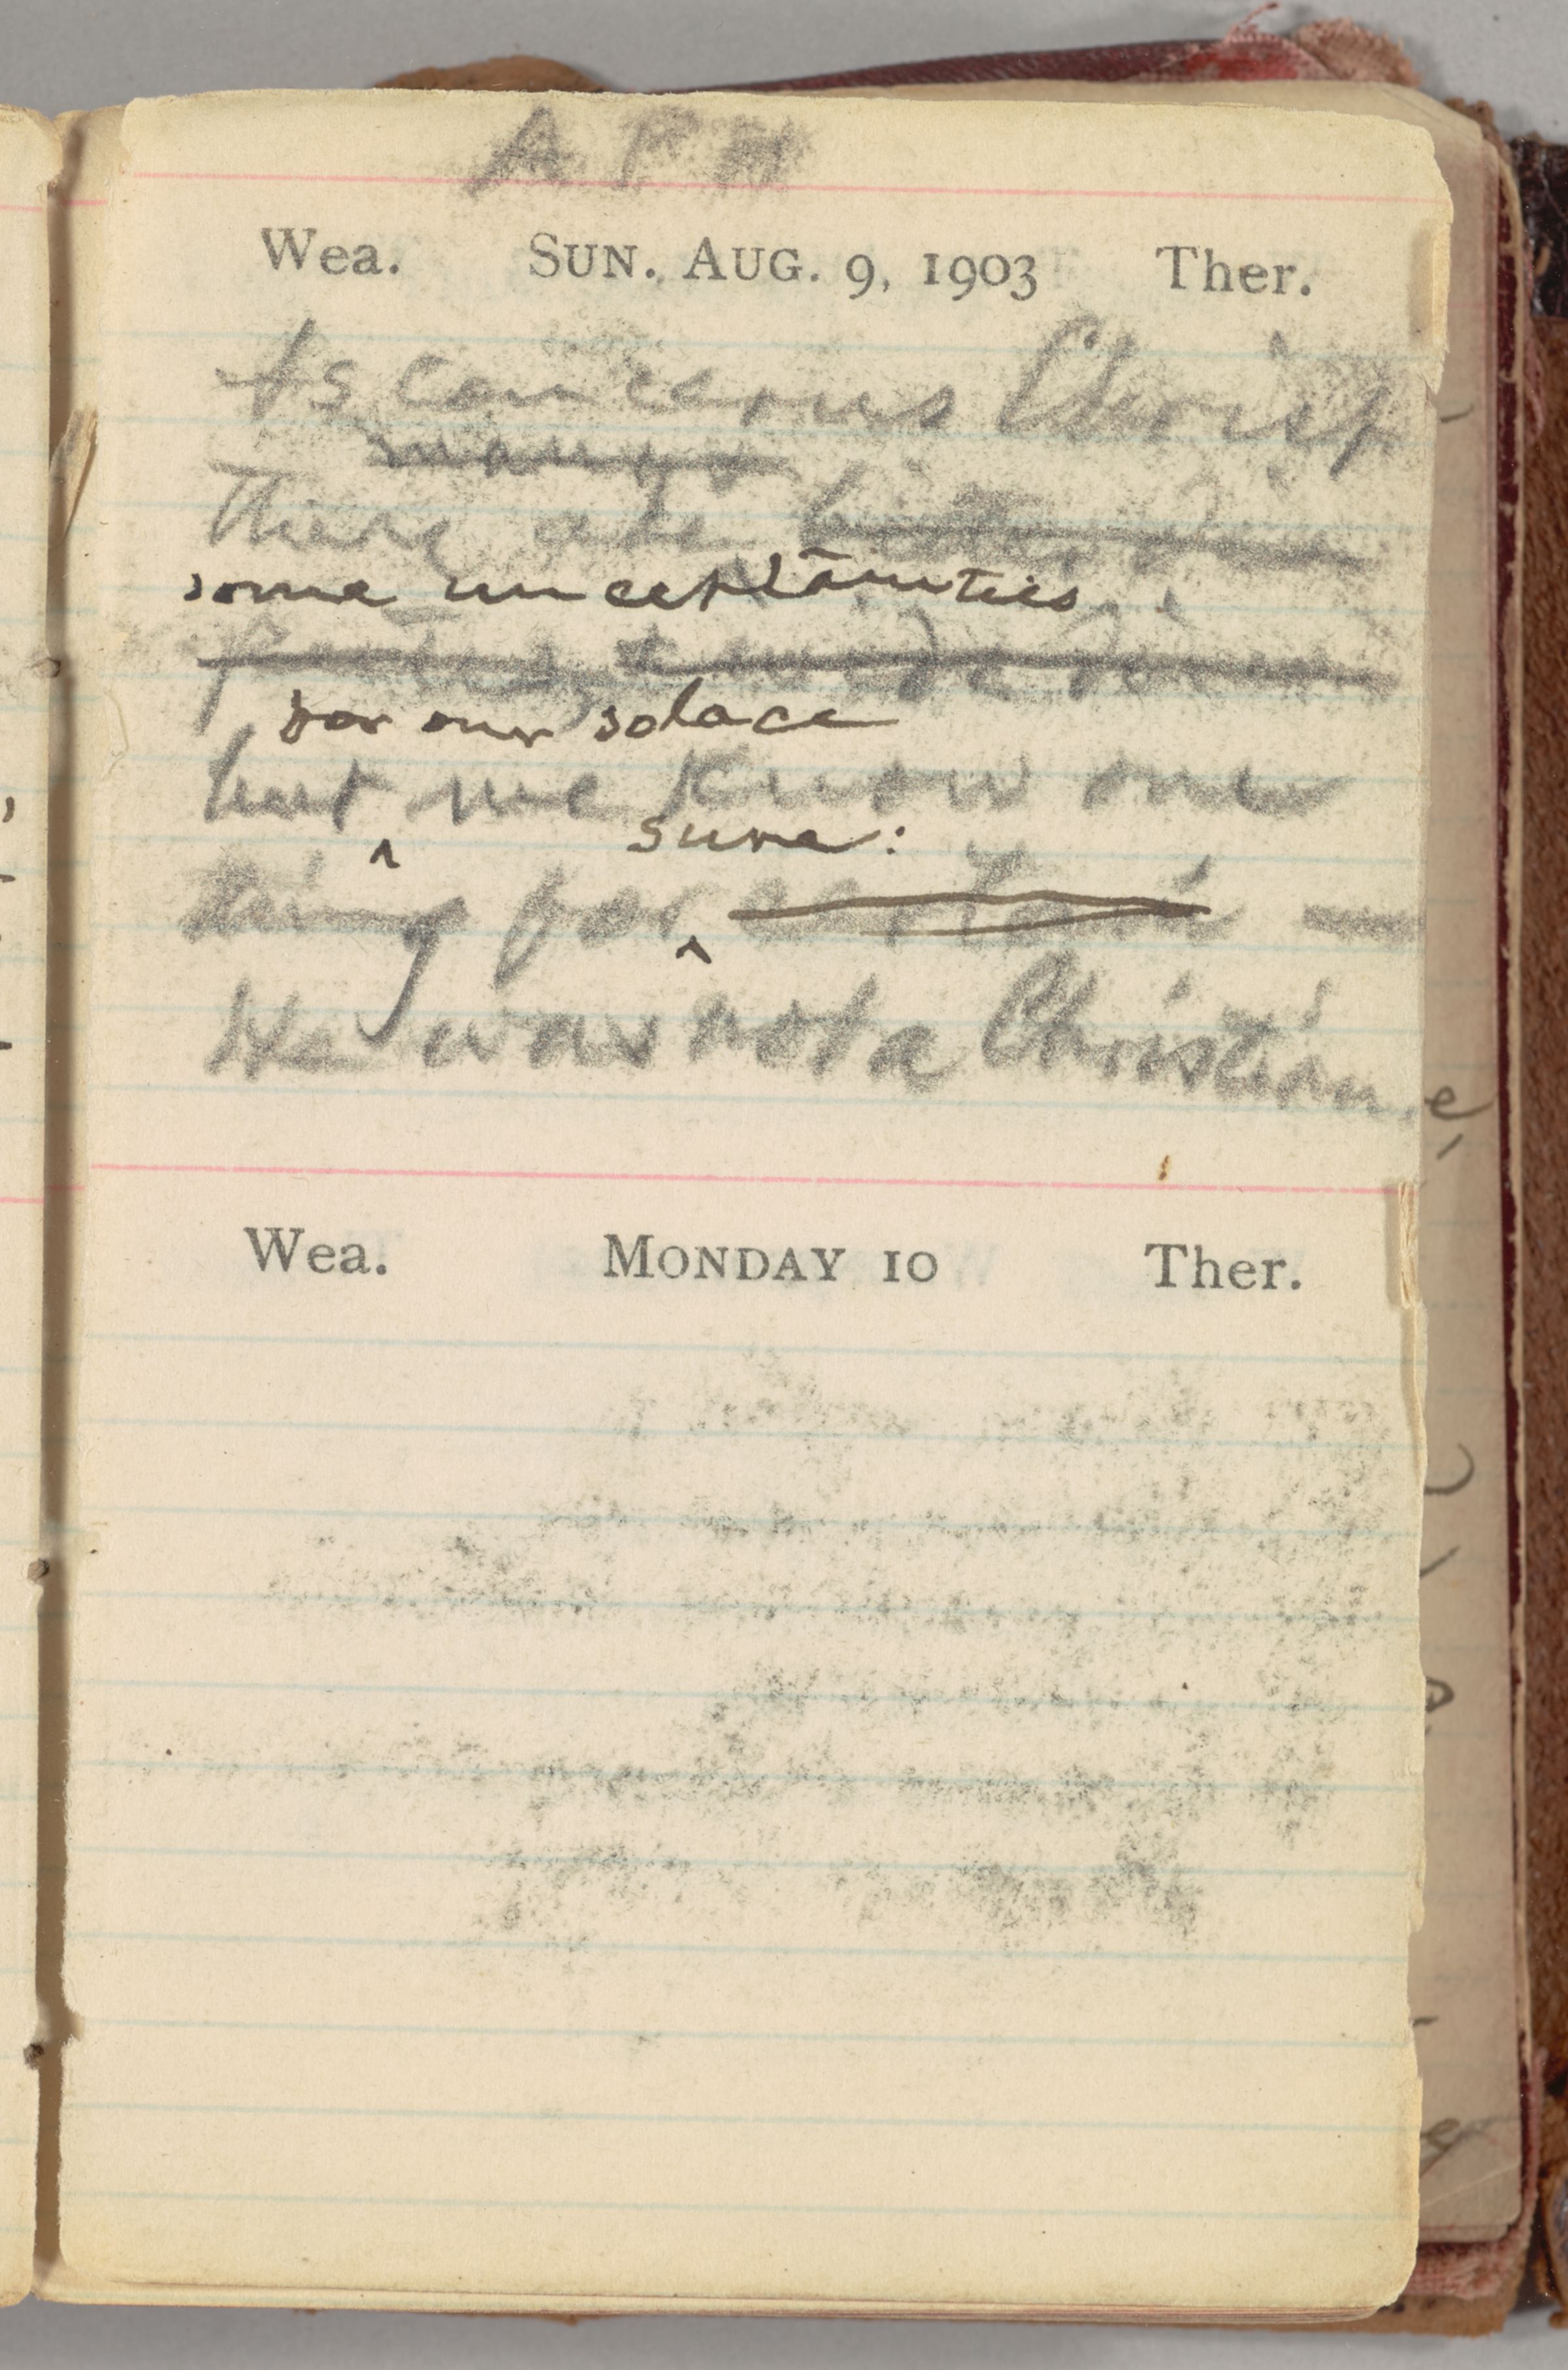 A P H
Wea. SUN. AUG. 9, 1903 Ther.
As concerns Christ
many
There are
some uncertainties
points
for our solace
but we know one
sure:
thing for ^ certain —
He was not a Christian.
Wea. MONDAY 10 Ther.